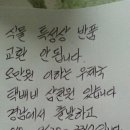 식물 특성상 반품
교환 안됩니다
오만원 이하는 우체국
택배비 삼천원 있습니다
경남에서 출발하고